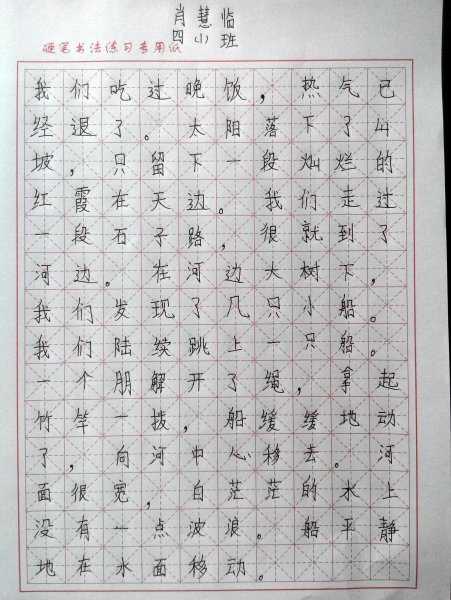 肖慧临
四小班
硬笔书法练习专用纸
我们吃过晚饭，热气已
经退了。太阳落下了山
坡，只留下一段灿烂的
红霞在天边。我们走过
一段石子路，很就到了
河边。在河边大树下，
我们发现了几只小船。
我们陆续跳上一只船。
一个朋解开了绳，拿起
竹竿一拨，船缓缓地动
了，向河中心移去。河
面很宽，白茫茫的水上
没有一点波浪。船平静
地在水面移动。